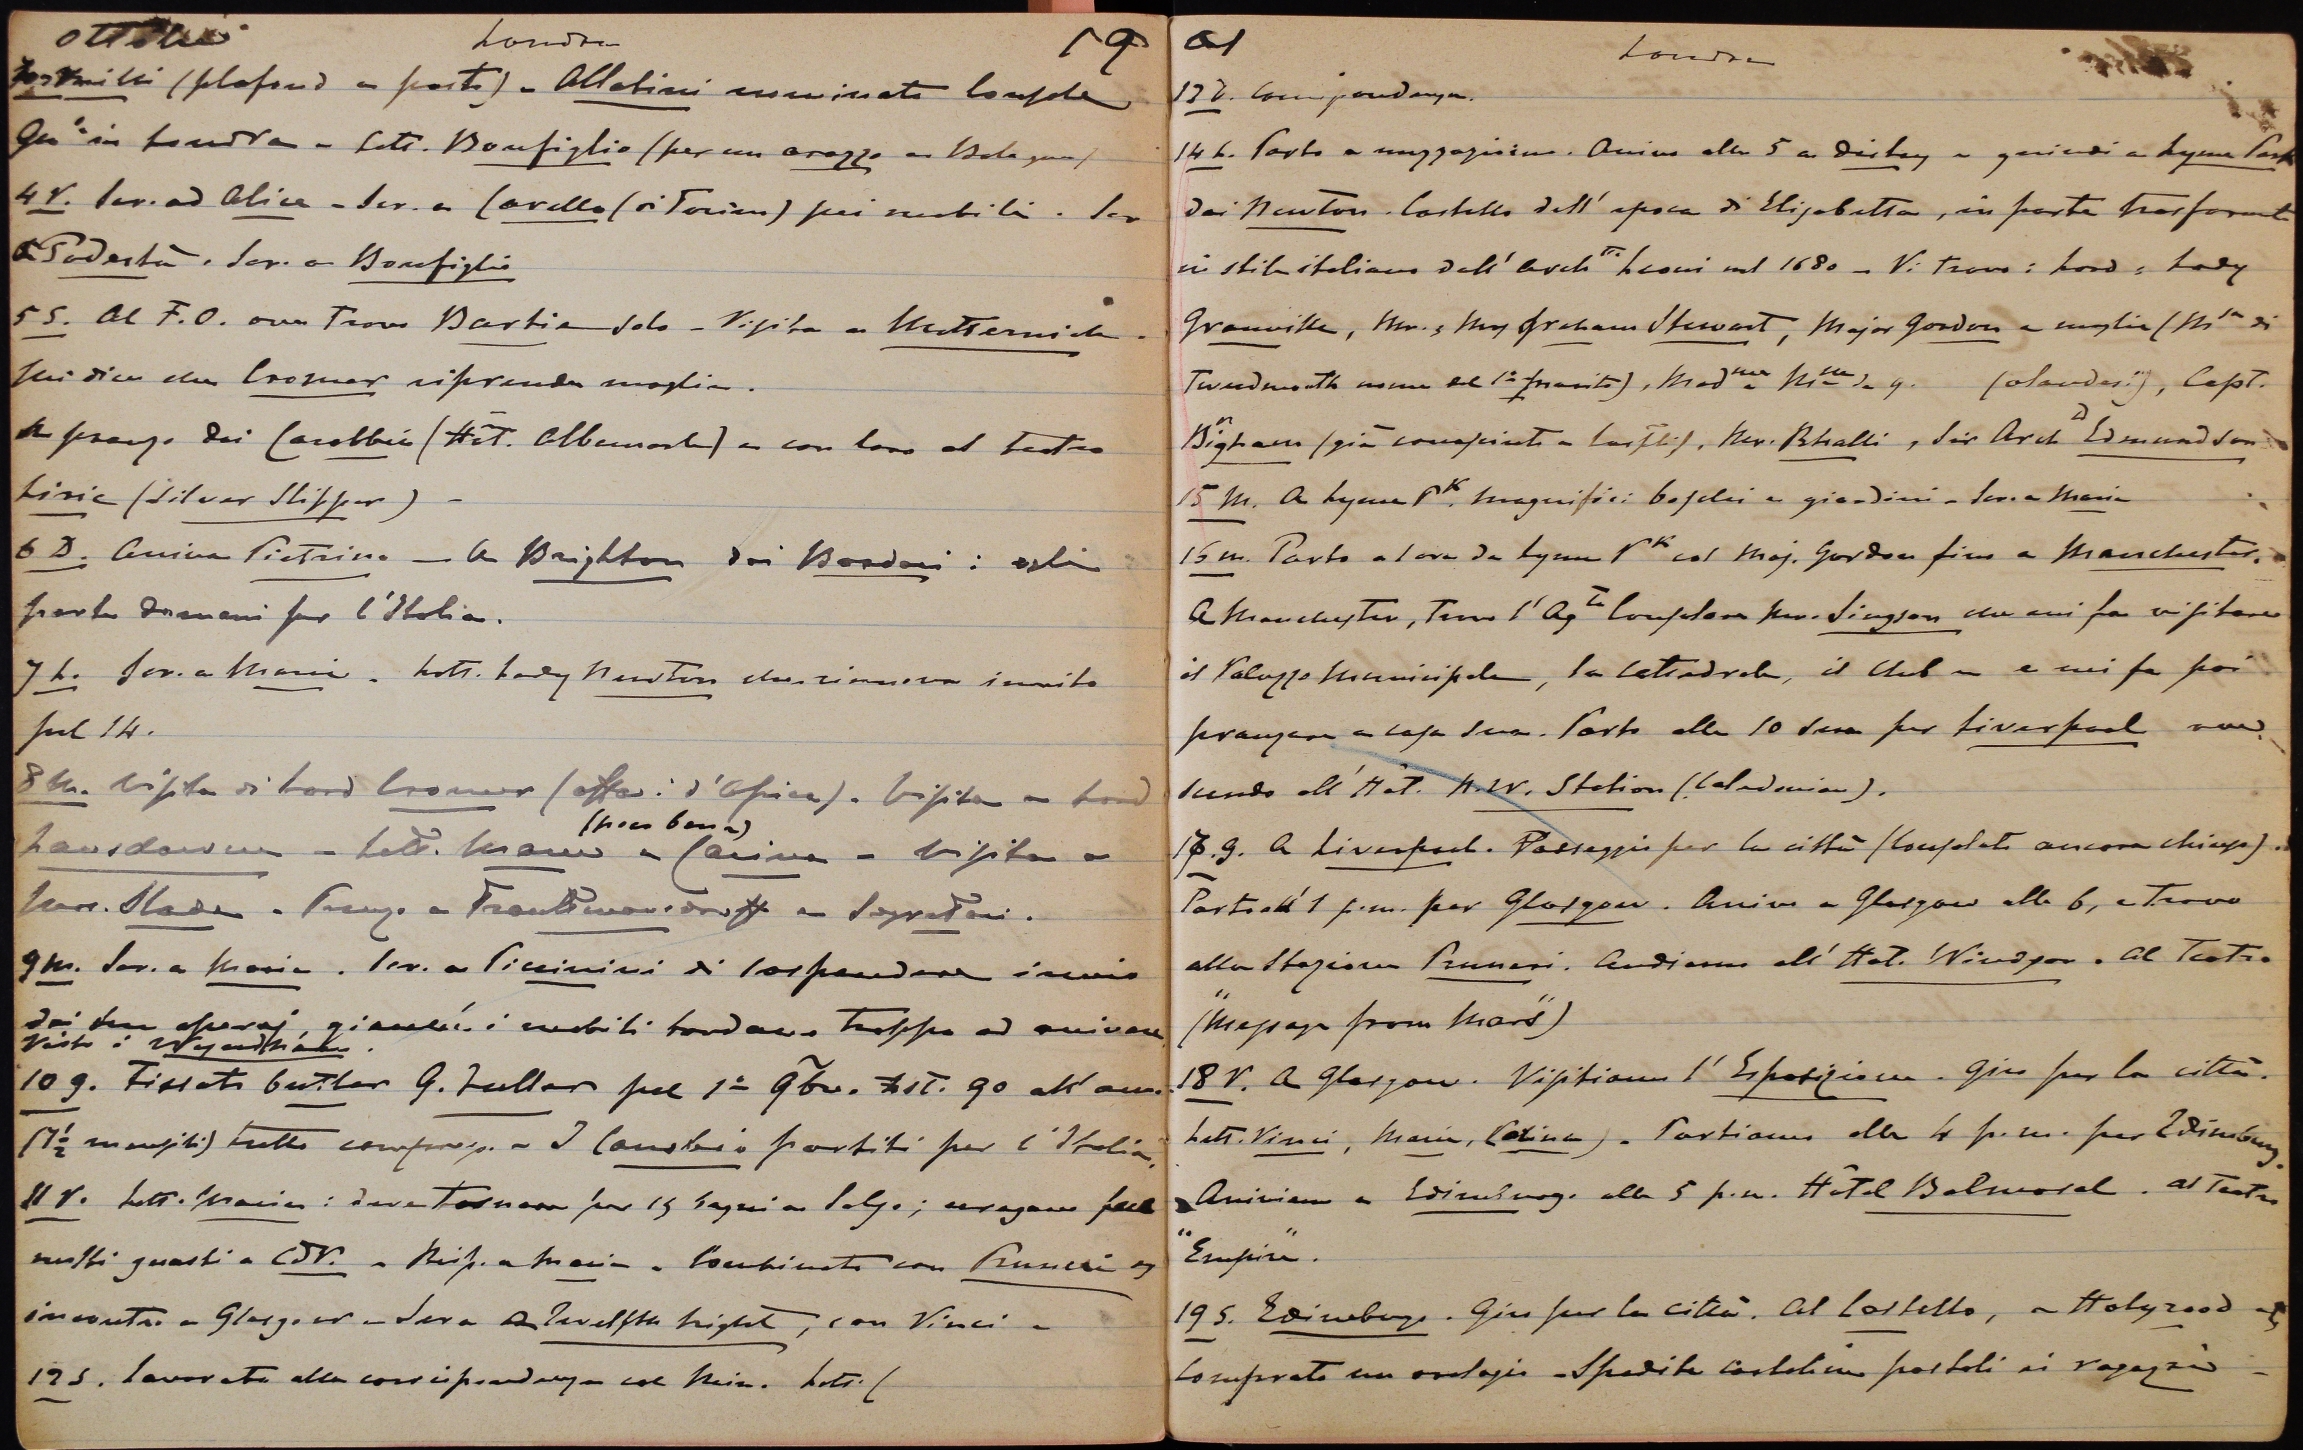 Ottobre Londra 19
(plafond e porte) - Allatini nominato Console
Gen.le in Londra - Lett. Bonfiglio (per un arazzo a Bologna)
4 V. Scr. ad Alice - Scr. a (di Torino) pei mobili. Scr
a Podestà. Scr. a Bonfiglio
5 S. Al F.O. ove trovo solo - Visita a Metternich.
Mi dice che Cromer riprende moglie.
A pranzo dai (Hôt. Albemarle) e con loro al teatro
Liric (Silver Slipper) -
6 D. Arriva Pietrino - A Brighton dai : egli
parte domani per l'Italia.
7 L. Scr. a Maria - Lett. Lady Newton che rinnova invito
pel 14.
8 M. Visita di Lord Cromer (affari d'Africa). Visita a Lord
(non bene)
Lansdowne - Lett. Maria e - Visita a
Mrs. Slade - Pranzo a Trauttmansdorff e
9 M. Scr. a Maria. Scr. a Piccinini di sospendere invio
dei suoi operaj, giacché i mobili tardano troppo ad arrivare
Visto i
10 G. Fissato butler G. Fuller pel 1° 9bre. Lst. 90 all'anno
(7½ mensili) tutto compreso - I partiti per l'Italia.
11 V. Lett. Maria: deve tornare per 15 a ; uragano fece
molti guasti a CdV. - Risp. a Maria - Combinato con Pruneri
incontro a Glasgow - Sera a Twelfth Night, con Vinci -
12 S. Lavorato alla corrispondenza col Min. Lett. (
01 Londra
13 D. Corrispondenza.
14 L. Parto a mezzogiorno. Arrivo alle 5 a Disley e quindi a Lyme Park
dai Newton. Castello dell'epoca di Elisabetta, in parte trasformato
in stile italiano dall'Arch.tto Leoni nel 1680 - Vi trovo: Lord & Lady
Granville, Mr. & Mrs Graham Stewart, Major Gordon e moglie (M.sa di
Tweedmouth nome del 1° marito), Mad.me (olandesi), Capt.
Bigham (già conosciuto a ), Mr. Ralli, Sir Arch.d Edmundson
15 M. A Lyme P.k. Magnifici boschi e giardini - Scr. a Maria
16 M. Parto a 1 ora da Lyme P.k col Maj. Gordon fino a Manchester.
A Manchester, trovo l'Ag.te Consolare Mr. che mi fa visitare
il Palazzo Municipale, la Cattedrale, il Club e mi fa poi
pranzare a casa sua. Parto alle 10 sera per Liverpool
scendo all'Hôt. N.W. Station (Caledonian).
17 G. A Liverpool. Passeggio per la città (Consolato ancora chiuso).
Parto all'1 p.m. per Glasgow. Arrivo a Glasgow alle 6, e trovo
alla Stazione Pruneri. Andiamo all'Hot. Windsor. Al Teatro
("Message from Mars")
18 V. A Glasgow. Visitiamo l'Esposizione. Giro per la città.
Lett. Vinci, Maria, - Partiamo alle 4 p.m. per Edimburg.
Arriviamo a Edimburgo alle 5 p.m. Hôtel Balmoral. Al Teatro
"Empire".
19 S. Edimburgo. Giro per la città. Al Castello, a Holyrood
Comprato un orologio - Spedite cartoline postali ai ragazzi -